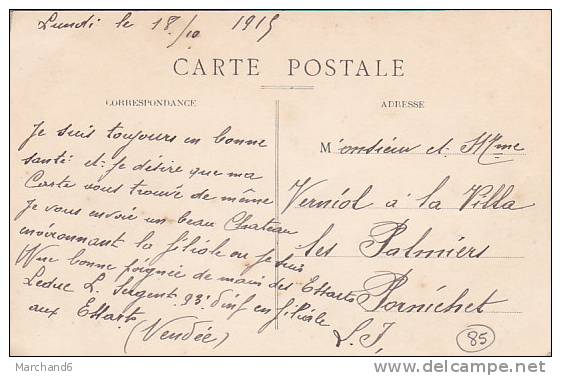 Lundi le 18/10 1915
CARTE POSTALE
CORRESPONDANCE
ADRESSE
Je suis toujours en bonne
santé et je désire que ma
Carte vous trouve de même
Je vous envoie un beau Chateau
environnant la filiale ou je suis
Une bonne poignée de main des Essarts
Leduc L. Sergent 93e d'inf en filiale
aux Essarts
(Vendée)
Monsieur et Mme
Verniol à la Villa
les Palmiers
Pornichet
L. I,
85
Marchand6
delcampe.net